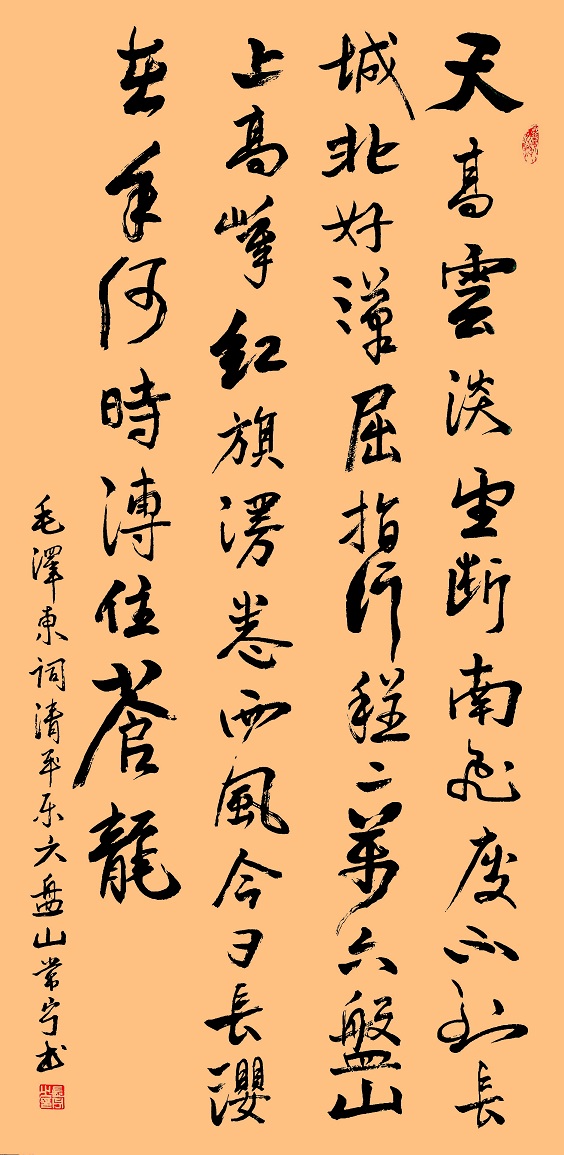 天高雲淡望断南飛雁不到長
城非好漢屈指行程二萬六盤山
上高峰红旗漫卷西風今日長纓
在手何時縛住蒼龍
毛澤東詞清平乐六盤山常宁书